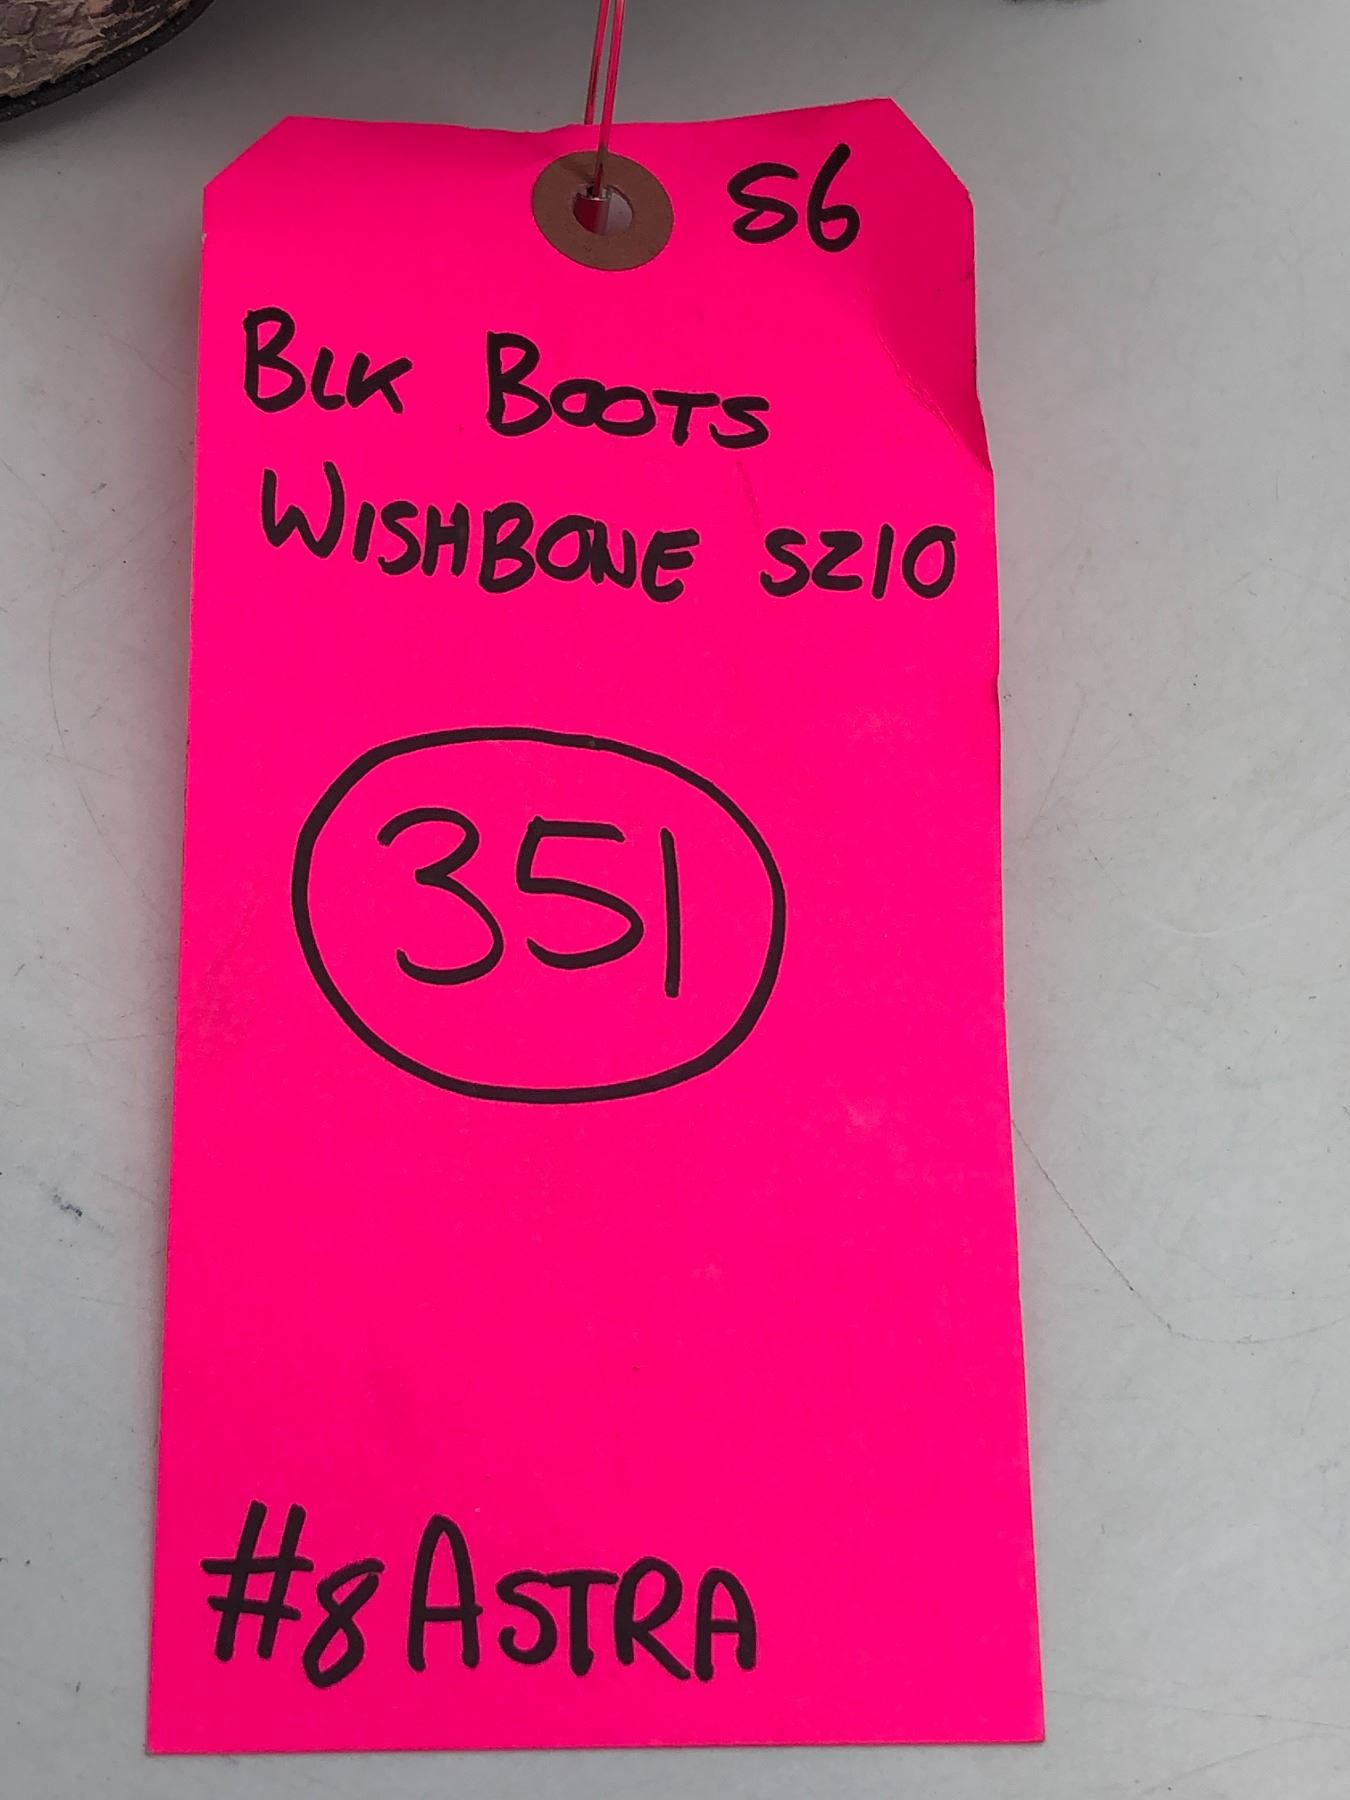 S6
BLK BOOTS
WISHBONE SZ10
351
#8 ASTRA